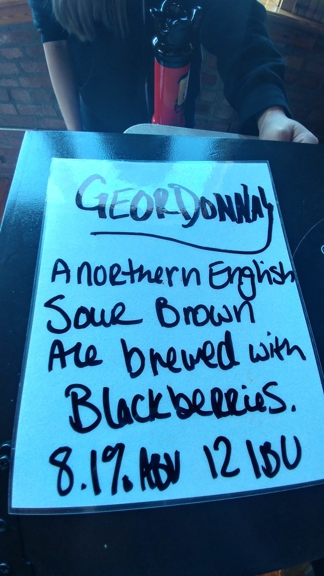 GEORDONNAY
A Northern English
Sour Brown
Ale brewed with
Blackberries.
8.1% ABV 12 IBU